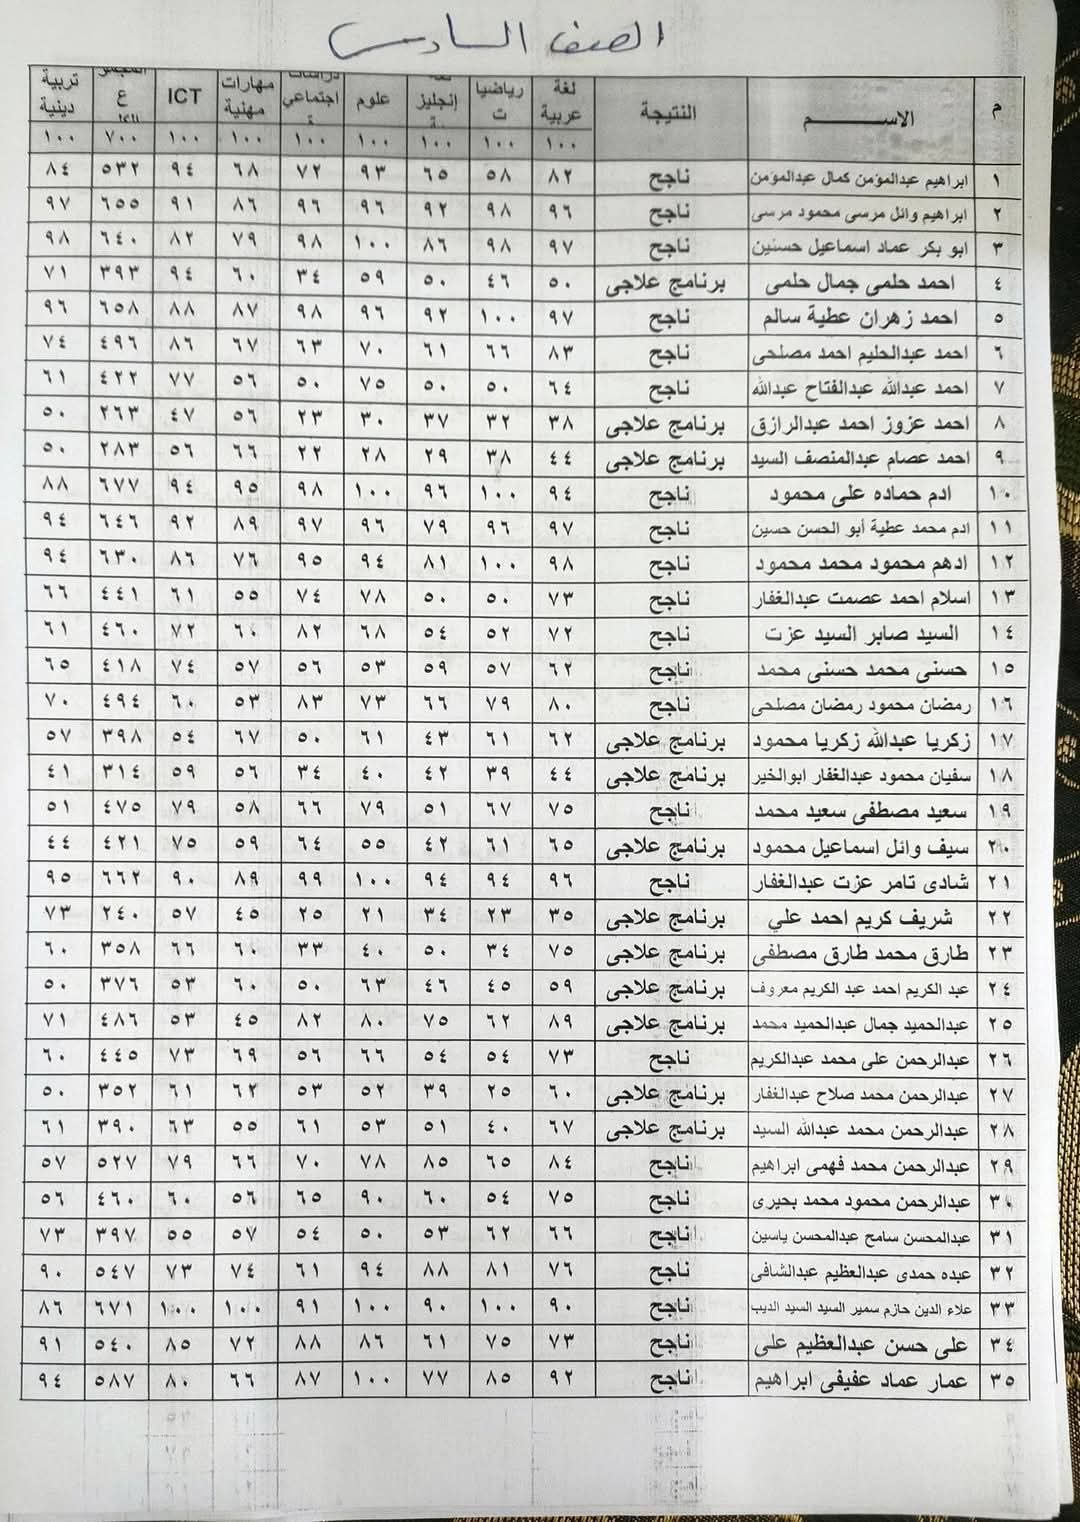 الصف السادس
م الاســـــم النتيجة لغة عربية رياضيات إنجليزية علوم اجتماعي مهارات مهنية ICT تربية دينية
١٠٠ ١٠٠ ١٠٠ ١٠٠ ١٠٠ ١٠٠ ١٠٠ ٧٠٠ ١٠٠
١ ابراهيم عبدالمؤمن كمال عبدالمؤمن ناجح ٨٢ ٥٨ ٦٥ ٩٣ ٧٢ ٦٨ ٩٤ ٥٣٢ ٨٤
٢ ابراهيم وائل مرسى محمود مرسى ناجح ٩٦ ٩٨ ٩٢ ٩٦ ٩٦ ٨٦ ٩١ ٦٥٥ ٩٧
٣ ابو بكر عماد اسماعيل حسنين ناجح ٩٧ ٩٨ ٨٦ ١٠٠ ٩٨ ٧٩ ٨٢ ٦٤٠ ٩٨
٤ احمد حلمى جمال حلمى برنامج علاجى ٥٠ ٤٦ ٥٠ ٥٩ ٣٤ ٦٠ ٩٤ ٣٩٣ ٧١
٥ احمد زهران عطية سالم ناجح ٩٧ ١٠٠ ٩٢ ٩٦ ٩٨ ٨٧ ٨٨ ٦٥٨ ٩٦
٦ احمد عبدالحليم احمد مصلحى ناجح ٨٣ ٦٦ ٦١ ٧٠ ٦٣ ٦٧ ٨٦ ٤٩٦ ٧٤
٧ احمد عبدالله عبدالفتاح عبدالله ناجح ٦٤ ٥٠ ٥٠ ٧٥ ٥٠ ٥٦ ٧٧ ٤٢٢ ٦١
٨ احمد عزوز احمد عبدالرازق برنامج علاجى ٣٨ ٣٢ ٣٧ ٣٠ ٢٣ ٥٦ ٤٧ ٢٦٣ ٥٠
٩ احمد عصام عبدالمنصف السيد برنامج علاجى ٤٤ ٣٨ ٢٩ ٢٨ ٢٢ ٦٦ ٥٦ ٢٨٣ ٥٠
١٠ ادم حماده على محمود ناجح ٩٤ ١٠٠ ٩٦ ١٠٠ ٩٨ ٩٥ ٩٤ ٦٧٧ ٨٨
١١ ادم محمد عطية أبو الحسن حسين ناجح ٩٧ ٩٦ ٧٩ ٩٦ ٩٧ ٨٩ ٩٢ ٦٤٦ ٩٤
١٢ ادهم محمود محمد محمود ناجح ٩٨ ١٠٠ ٨١ ٩٤ ٩٥ ٧٦ ٨٦ ٦٣٠ ٩٤
١٣ اسلام احمد عصمت عبدالغفار ناجح ٧٣ ٥٠ ٥٠ ٧٨ ٧٤ ٥٥ ٦١ ٤٤١ ٦٦
١٤ السيد صابر السيد عزت ناجح ٧٢ ٥٢ ٥٤ ٦٨ ٨٢ ٦٠ ٧٢ ٤٦٠ ٦١
١٥ حسنى محمد حسنى محمد ناجح ٦٢ ٥٧ ٥٩ ٥٣ ٥٦ ٥٧ ٧٤ ٤١٨ ٦٥
١٦ رمضان محمود رمضان مصلحى ناجح ٨٠ ٧٩ ٦٦ ٧٣ ٨٣ ٥٣ ٦٠ ٤٩٤ ٧٠
١٧ زكريا عبدالله زكريا محمود برنامج علاجى ٦٢ ٦١ ٤٣ ٦١ ٥٠ ٦٧ ٥٤ ٣٩٨ ٥٧
١٨ سفيان محمود عبدالغفار ابوالخير برنامج علاجى ٤٤ ٣٩ ٤٢ ٤٠ ٣٤ ٥٦ ٥٩ ٣١٤ ٤١
١٩ سعيد مصطفى سعيد محمد ناجح ٧٥ ٦٧ ٥١ ٧٩ ٦٦ ٥٨ ٧٩ ٤٧٥ ٥١
٢٠ سيف وائل اسماعيل محمود برنامج علاجى ٦٥ ٦١ ٤٢ ٥٥ ٦٤ ٥٩ ٧٥ ٤٢١ ٤٤
٢١ شادى تامر عزت عبدالغفار ناجح ٩٦ ٩٤ ٩٤ ١٠٠ ٩٩ ٨٩ ٩٠ ٦٦٢ ٩٥
٢٢ شريف كريم احمد علي برنامج علاجى ٣٥ ٢٣ ٣٤ ٢١ ٢٥ ٤٥ ٥٧ ٢٤٠ ٧٣
٢٣ طارق محمد طارق مصطفى برنامج علاجى ٧٥ ٣٤ ٥٠ ٤٠ ٣٣ ٦٠ ٦٦ ٣٥٨ ٦٠
٢٤ عبد الكريم احمد عبد الكريم معروف برنامج علاجى ٥٩ ٤٥ ٤٦ ٦٣ ٥٠ ٦٠ ٥٣ ٣٧٦ ٥٠
٢٥ عبدالحميد جمال عبدالحميد محمد برنامج علاجى ٨٩ ٦٢ ٧٥ ٨٠ ٨٢ ٤٥ ٥٣ ٤٨٦ ٧١
٢٦ عبدالرحمن على محمد عبدالكريم ناجح ٧٣ ٥٤ ٥٤ ٦٦ ٥٦ ٦٩ ٧٣ ٤٤٥ ٦٠
٢٧ عبدالرحمن محمد صلاح عبدالغفار برنامج علاجى ٦٠ ٢٥ ٣٩ ٥٢ ٥٣ ٦٢ ٦١ ٣٥٢ ٥٠
٢٨ عبدالرحمن محمد عبدالله السيد برنامج علاجى ٦٧ ٤٠ ٥١ ٥٣ ٦١ ٥٥ ٦٣ ٣٩٠ ٦١
٢٩ عبدالرحمن محمد فهمى ابراهيم ناجح ٨٤ ٦٥ ٨٥ ٧٨ ٧٠ ٦٦ ٧٩ ٥٢٧ ٥٧
٣٠ عبدالرحمن محمود محمد بحيرى ناجح ٧٥ ٥٤ ٦٠ ٩٠ ٦٥ ٥٦ ٦٠ ٤٦٠ ٥٦
٣١ عبدالمحسن سامح عبدالمحسن ياسين ناجح ٦٦ ٦٢ ٥٣ ٥٠ ٥٤ ٥٧ ٥٥ ٣٩٧ ٧٣
٣٢ عبده حمدى عبدالعظيم عبدالشافى ناجح ٧٦ ٨١ ٨٨ ٩٤ ٦١ ٧٤ ٧٣ ٥٤٧ ٩٠
٣٣ علاء الدين حازم سمير السيد السيد الديب ناجح ٩٠ ١٠٠ ٩٠ ١٠٠ ٩١ ١٠٠ ١٠٠ ٦٧١ ٨٦
٣٤ على حسن عبدالعظيم على ناجح ٧٣ ٧٥ ٦١ ٨٦ ٨٨ ٧٢ ٨٥ ٥٤٠ ٩١
٣٥ عمار عماد عفيفى ابراهيم ناجح ٩٢ ٨٥ ٧٧ ١٠٠ ٨٧ ٦٦ ٨٠ ٥٨٧ ٩٤